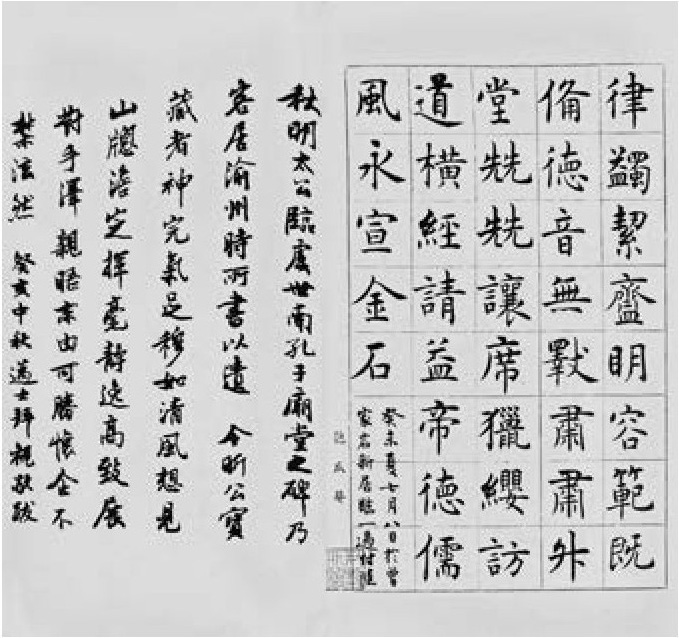 律蠲絜齍明容範既
俻德音無斁肅肅升
堂兟兟讓席獵纓訪
道橫經請益帝德儒
風永宣金石
癸未夏七月八日於曾
家岩新居臨一過付
秋明太公臨虞世南孔子廟堂之碑乃
客居渝州時所書以遺 令昕公寶
藏者神完氣足穆如清風想見
山牕澹定揮毫靜逸高致展
對手澤親晤末由可勝懷企不
禁泫然 癸亥中秋邁士拜觀敬跋